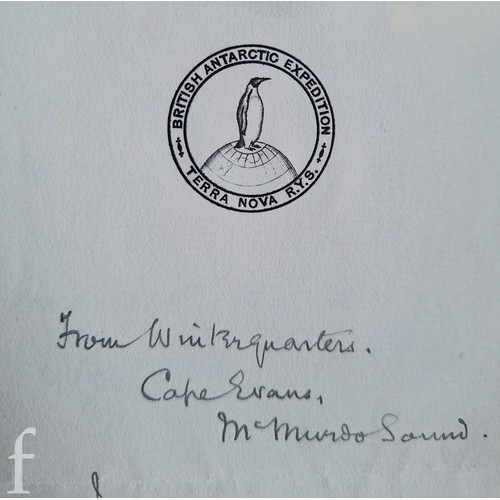 BRITISH ANTARCTIC EXPEDITION
TERRA NOVA R.Y.S.
From Winterquarters.
Cape Evans,
McMurdo Sound.
f